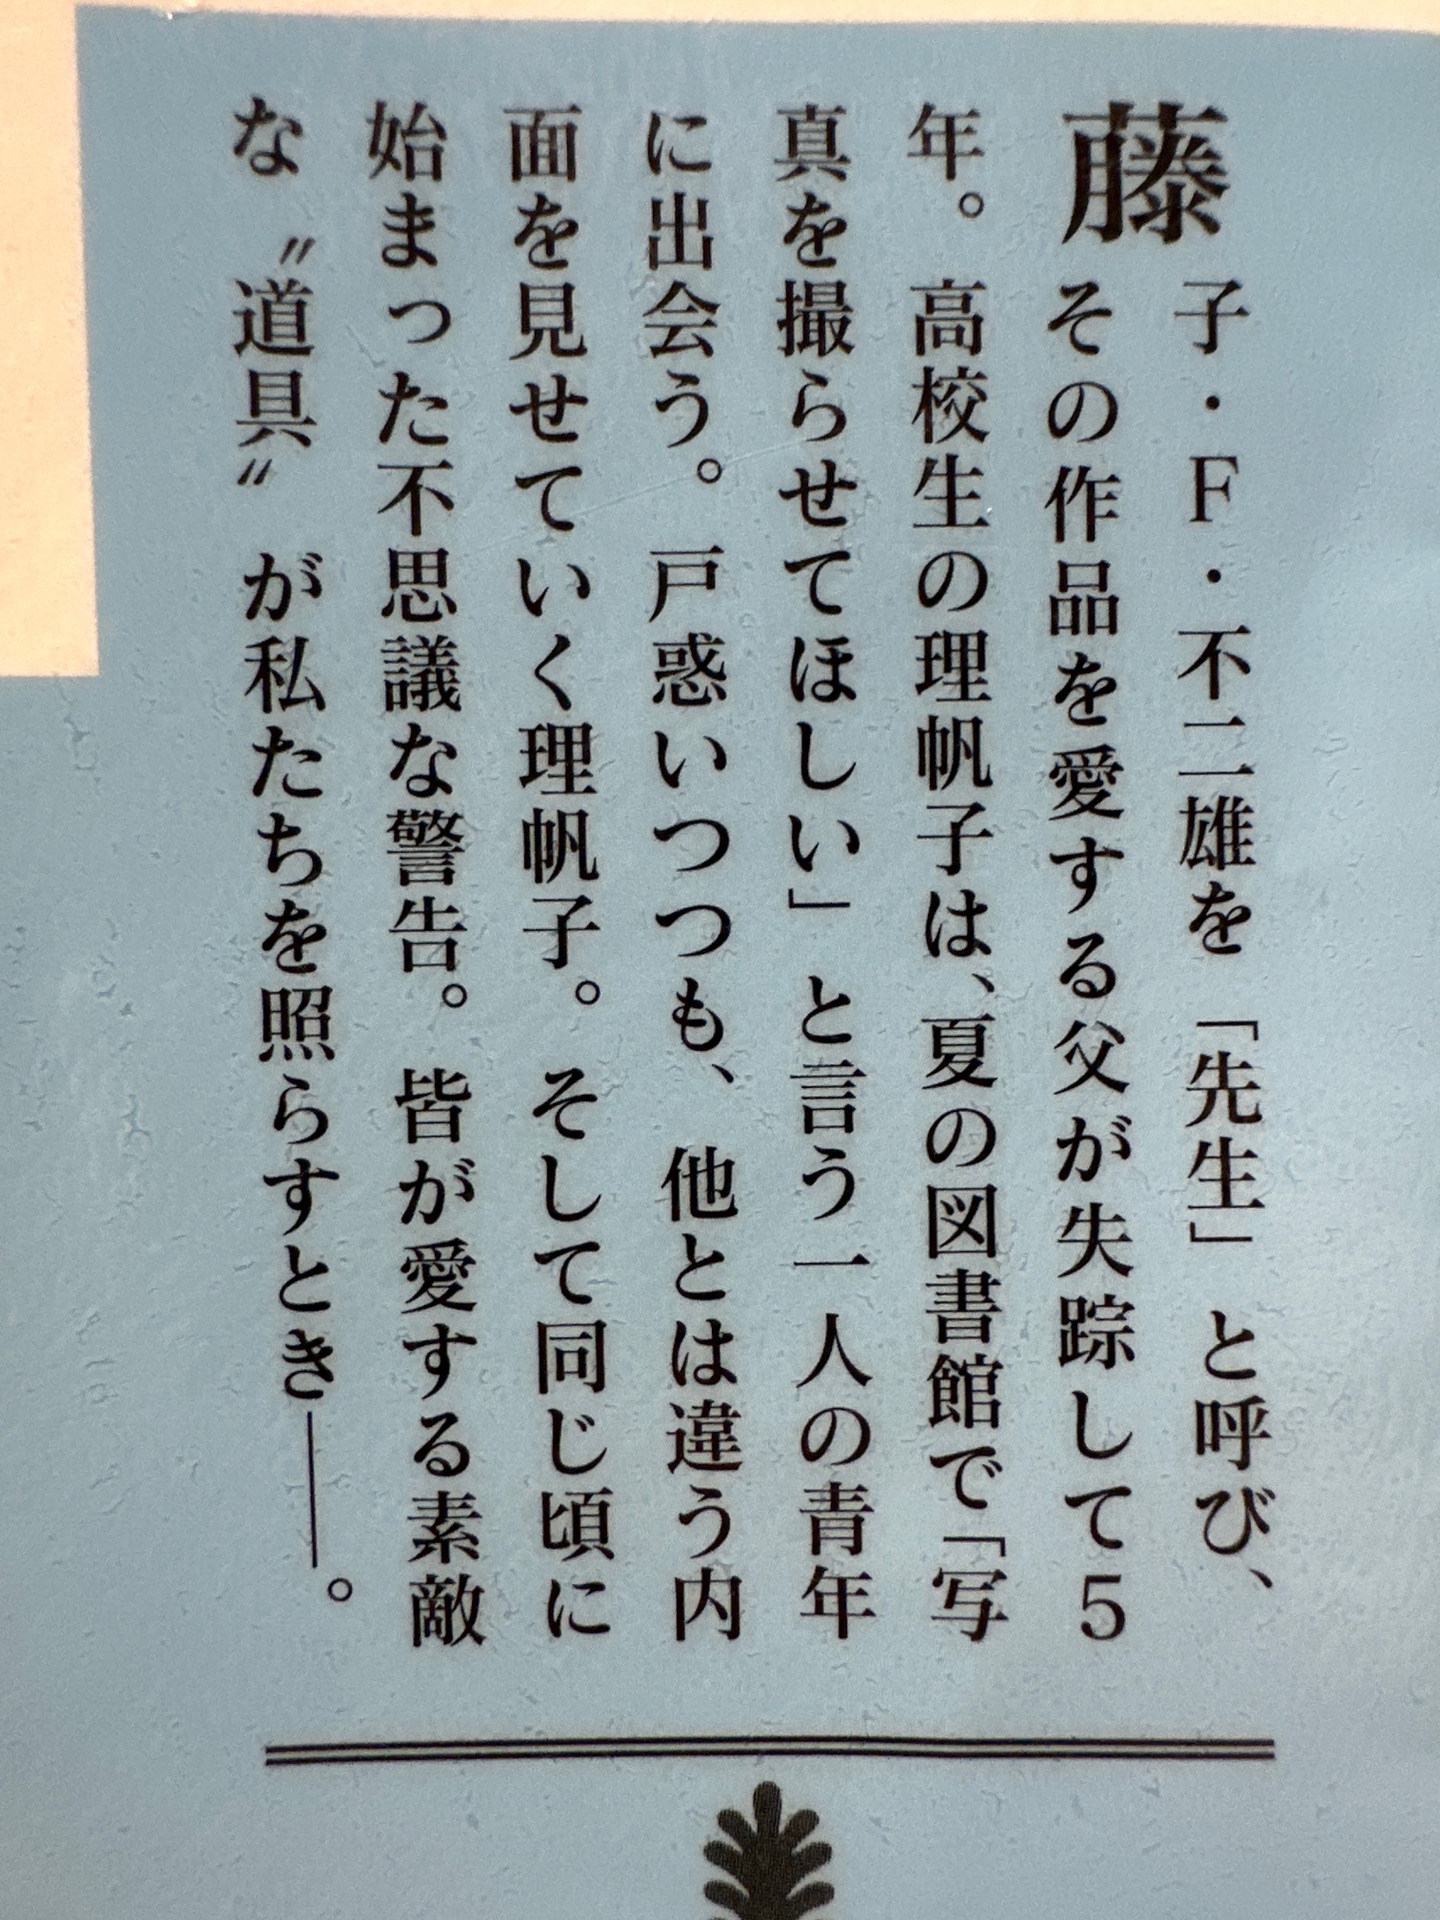 藤子・F・不二雄を「先生」と呼び、
その作品を愛する父が失踪して5
年。高校生の理帆子は、夏の図書館で「写
真を撮らせてほしい」と言う一人の青年
に出会う。戸惑いつつも、他とは違う内
面を見せていく理帆子。そして同じ頃に
始まった不思議な警告。皆が愛する素敵
な〝道具〟が私たちを照らすとき――。